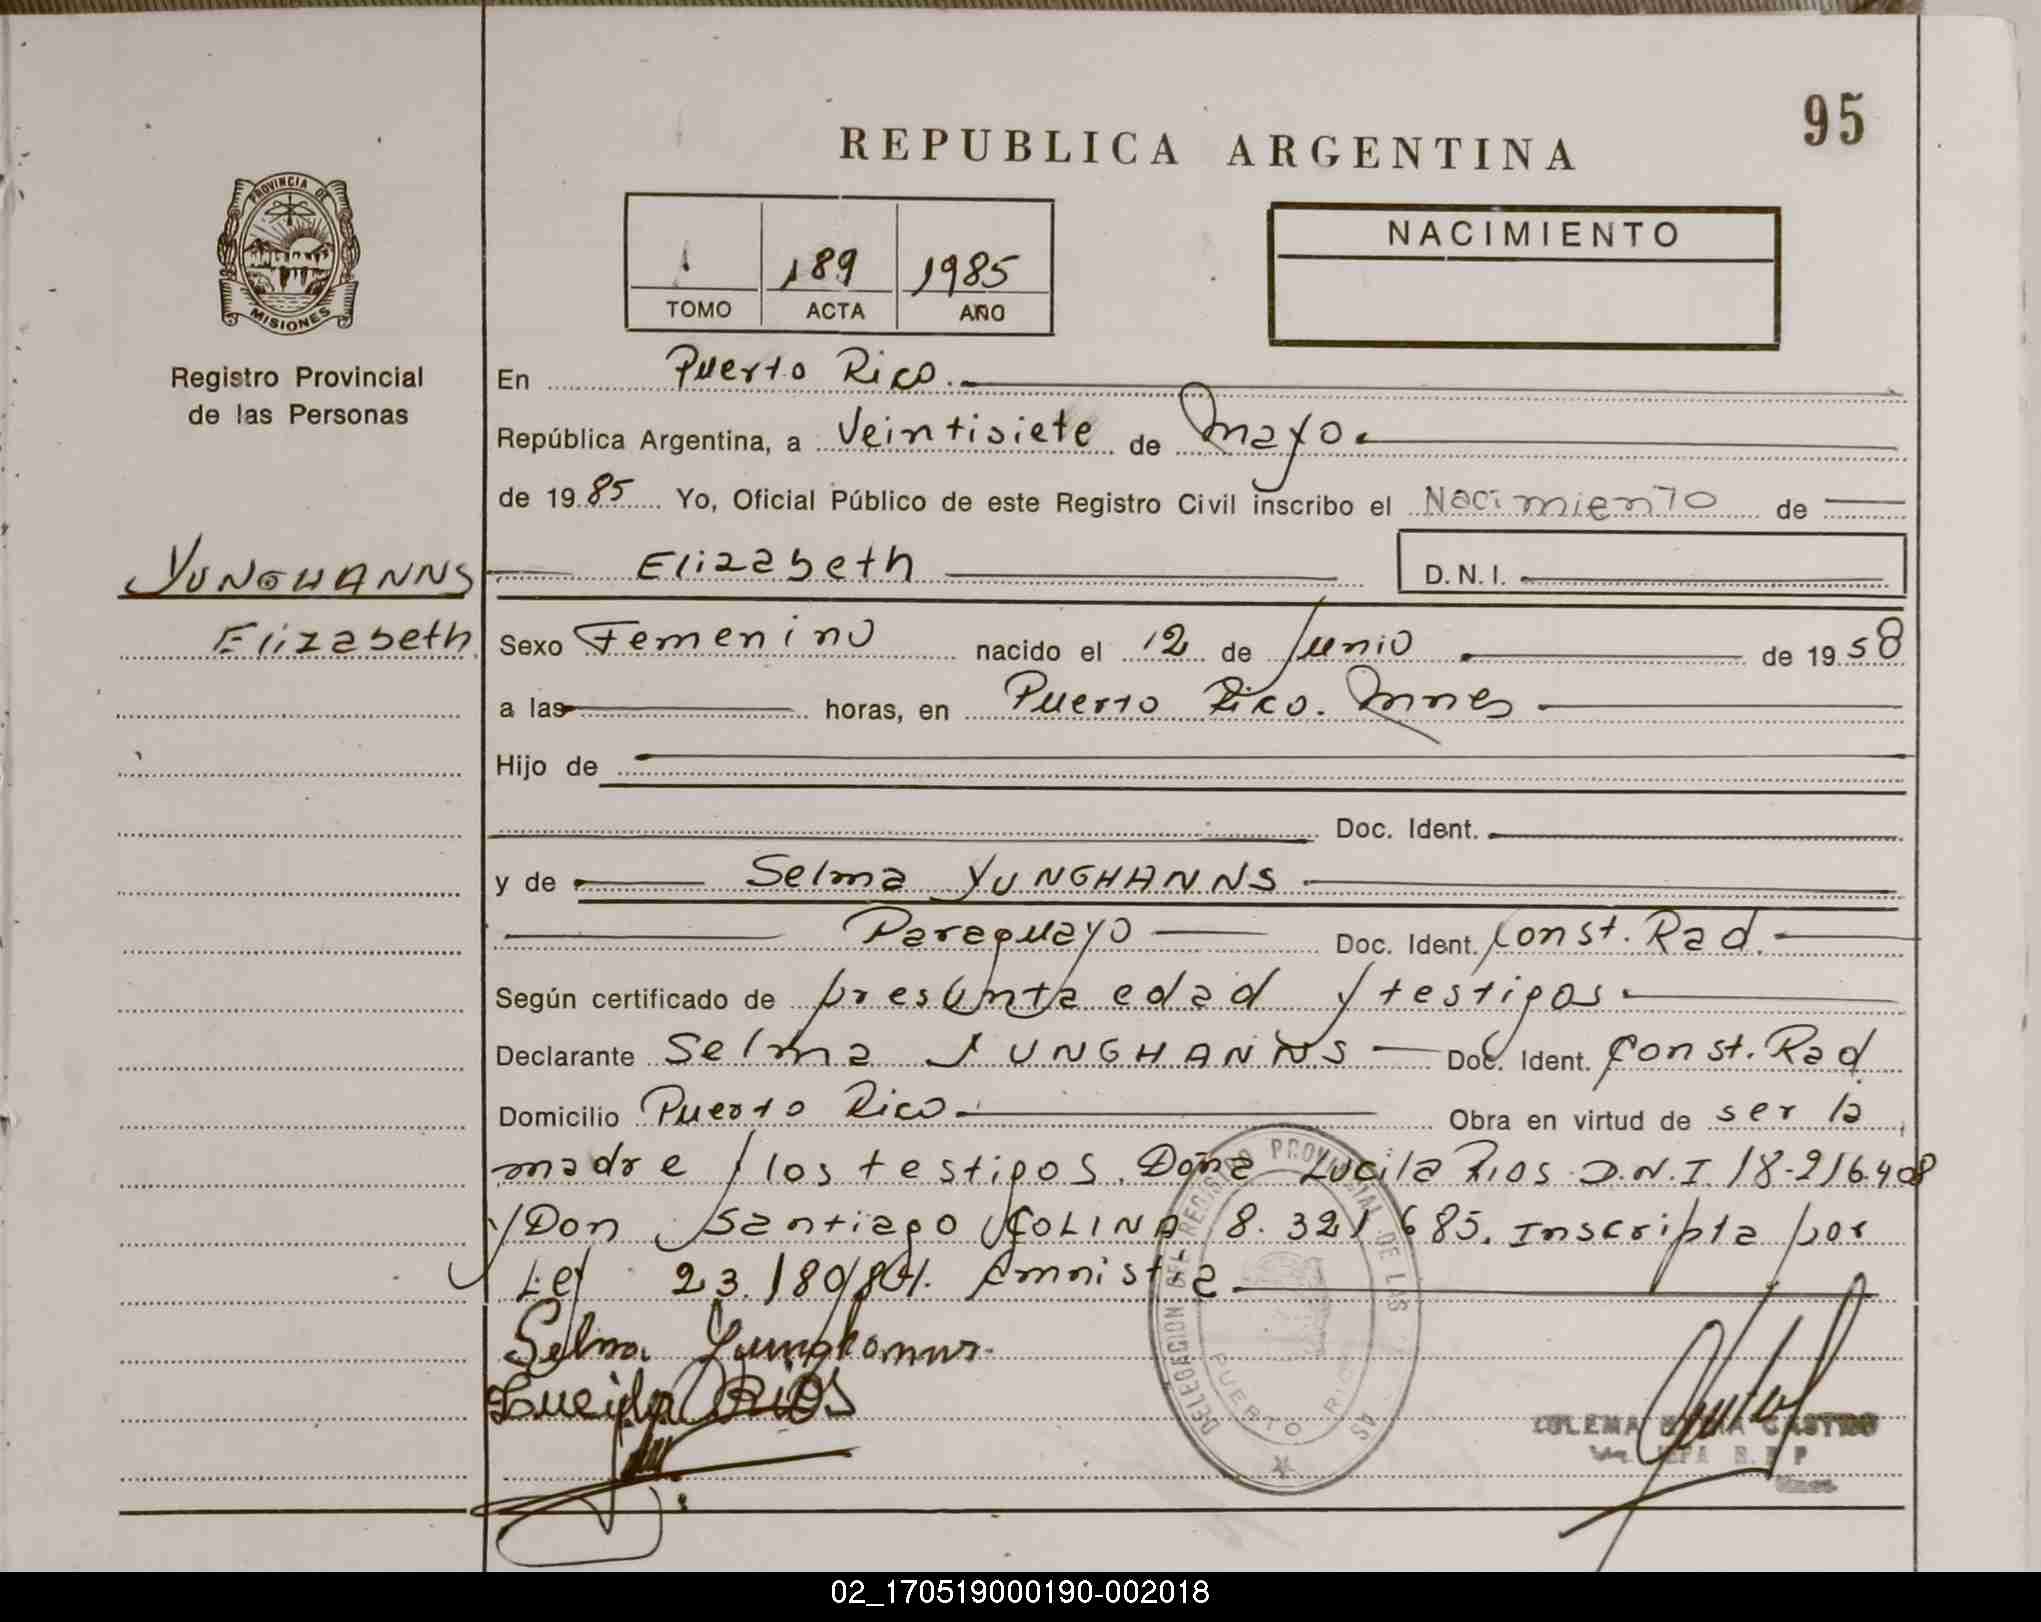 95
REPUBLICA ARGENTINA
PROVINCIA DE
MISIONES
Registro Provincial
de las Personas
1 189 1985
TOMO ACTA AÑO
NACIMIENTO
En Puerto Rico.
República Argentina, a Veintisiete de mayo.
de 1985 Yo, Oficial Público de este Registro Civil inscribo el Nacimiento de
YUNGHANNS
Elizabeth
Elizabeth
D.N.I.
Sexo Femenino nacido el 12 de Junio de 1958
a las horas, en Puerto Rico. Mnes
Hijo de
Doc. Ident.
y de Selma YUNGHANNS
Paraguayo Doc. Ident. Const. Rad.
Según certificado de presunta edad y testigos
Declarante Selma YUNGHANNS Doc. Ident. Const. Rad.
Domicilio Puerto Rico Obra en virtud de ser la
madre y los testigos. Doña Lucila RIOS D.N.I. 18-216.408
y Don Santiago COLINA 8.321685. Inscripta por
Ley 23.180/84. Amnistia
Selma Yunghanns
Lucila RIOS
DELEGACION DEL REGISTRO PROVINCIAL DE LAS
PUERTO RICO
CASTRO
02_170519000190-002018